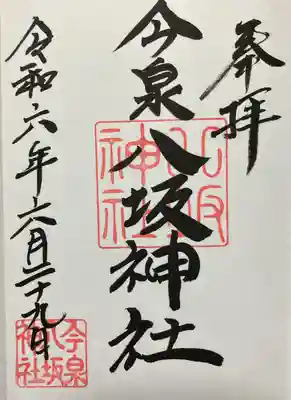 奉拝
今泉八坂神社
八坂
神社
令和六年六月二十九日
今泉
八坂
神社